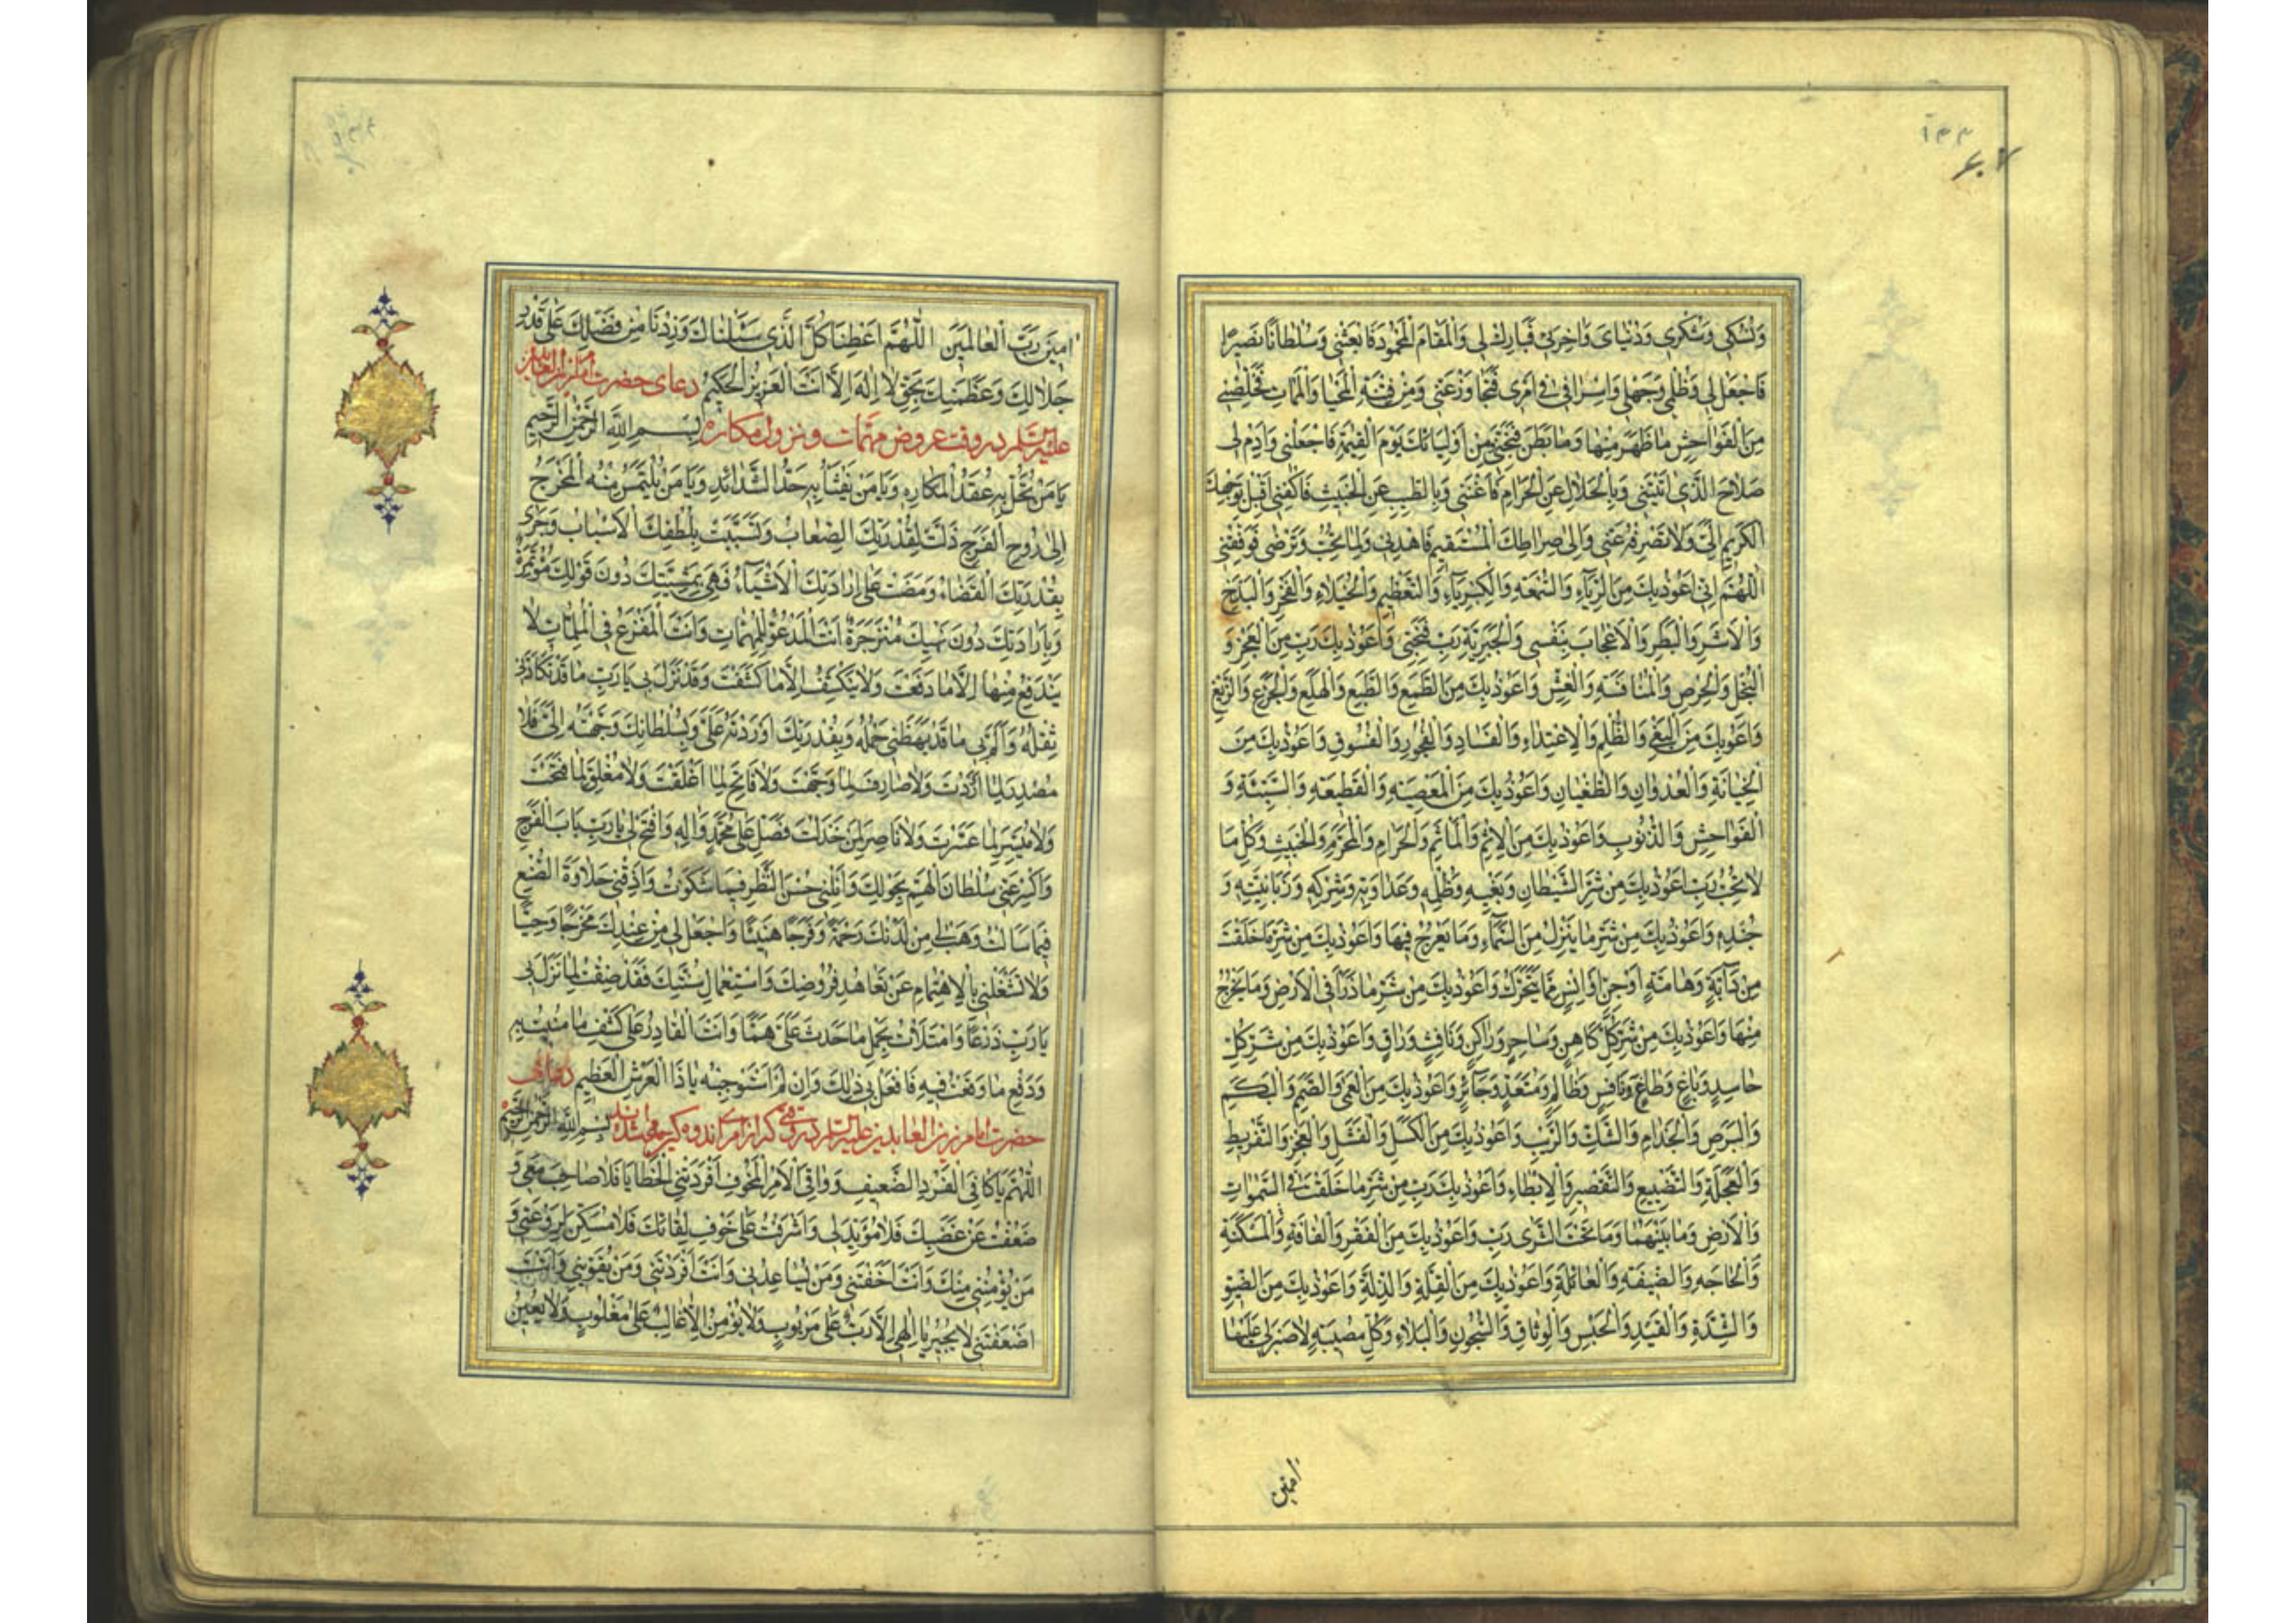 ۱۳۳
۶۰۷
وَنُسُكي وَشُكْري وَدُنْيايَ وَاخِرَتي فَبارِكْ لي وَالْمَقامَ الْمَحْمُودَ فَابْعَثْني وَسُلْطانًا نَصيرًا
فَاجْعَلْ لي وَظُلْمي وَجَهْلي وَاِسْرافي في اَمْري فَتَجاوَزْ عَنّي وَمِنْ فِتْنَةِ الْمَحْيا وَالْمَماتِ فَخَلِّصْني
مِنَ الْفَواحِشِ ما ظَهَرَ مِنْها وَما بَطَنَ فَنَجِّني مِنْ اَوْلِيائِكَ يَوْمَ الْقِيٰمَةِ فَاجْعَلْني وَاَدِمْ لي
صَلاحَ الَّذي اتَيْتَني وَبِالْحَلالِ عَنِ الْحَرامِ فَاَغْنِني وَبِالطَّيِّبِ عَنِ الْخَبيثِ فَاكْفِني اَقْبِلْ بِوَجْهِكَ
الْكَريمِ اِلَيَّ وَلا تَصْرِفْهُ عَنّي وَاِلى صِراطِكَ الْمُسْتَقيمِ فَاهْدِني وَلِما تُحِبُّ وَتَرْضى فَوَفِّقْني
اَللّهُمَّ اِنّي اَعُوذُ بِكَ مِنَ الرِّياءِ وَالسُّمْعَةِ وَالْكِبْرِياءِ وَالتَّعْظيمِ وَالْخُيَلاءِ وَالْفَخْرِ وَالْبَذَخِ
وَالْاَشَرِ وَالْبَطَرِ وَالْاِعْجابِ بِنَفْسي وَالْجَبَرِيَّةِ رَبِّ فَنَجِّني وَاَعُوذُ بِكَ رَبِّ مِنَ الْعَجْزِ وَ
الْبُخْلِ وَالْحِرْصِ وَالْمُنافَسَةِ وَالْغِشِّ وَاَعُوذُ بِكَ مِنَ الطَّمَعِ وَالطَّبَعِ وَالْهَلَعِ وَالْجَزَعِ وَالزَّيْغِ
وَاَعُوذُ بِكَ مِنَ الْبَغْيِ وَالظُّلْمِ وَالْاِعْتِداءِ وَالْفَسادِ وَالْفُجُورِ وَالْفُسُوقِ وَاَعُوذُ بِكَ مِنَ
الْخِيانَةِ وَالْعُدْوانِ وَالطُّغْيانِ وَاَعُوذُ بِكَ مِنَ الْمَعْصِيَةِ وَالْقَطيعَةِ وَالسَّيِّئَةِ وَ
الْفَواحِشِ وَالذُّنُوبِ وَاَعُوذُ بِكَ مِنَ الْاِثْمِ وَالْمَأْثَمِ وَالْحَرامِ وَالْمُحَرَّمِ وَالْخَبيثِ وَكُلِّ ما
لا تُحِبُّ رَبِّ اَعُوذُ بِكَ مِنْ شَرِّ الشَّيْطانِ وَبَغْيِهِ وَظُلْمِهِ وَعَداوَتِهِ وَشَرَكِهِ وَزَبانِيَتِهِ وَ
جُنْدِهِ وَاَعُوذُ بِكَ مِنْ شَرِّ ما يَنْزِلُ مِنَ السَّماءِ وَما يَعْرُجُ فيها وَاَعُوذُ بِكَ مِنْ شَرِّ ما خَلَقْتَ
مِنْ دابَّةٍ وَهامَّةٍ اَوْ جِنٍّ اَوْ اِنْسٍ مِمّا يَتَحَرَّكُ وَاَعُوذُ بِكَ مِنْ شَرِّ ما ذَرَأَ فِي الْاَرْضِ وَما يَخْرُجُ
مِنْها وَاَعُوذُ بِكَ مِنْ شَرِّ كُلِّ كاهِنٍ وَساحِرٍ وَراكِنٍ وَنافِثٍ وَراقٍ وَاَعُوذُ بِكَ مِنْ شَرِّ كُلِّ
حاسِدٍ وَباغٍ وَطاغٍ وَنافِسٍ وَظالِمٍ وَمُتَعَدٍّ وَجائِرٍ وَاَعُوذُ بِكَ مِنَ الْعَمى وَالصَّمَمِ وَالْبَكَمِ
وَالْبَرَصِ وَالْجُذامِ وَالشَّكِّ وَالرَّيْبِ وَاَعُوذُ بِكَ مِنَ الْكَسَلِ وَالْفَشَلِ وَالْعَجْزِ وَالتَّفْريطِ
وَالْعَجَلَةِ وَالتَّضْييعِ وَالتَّقْصيرِ وَالْاِبْطاءِ وَاَعُوذُ بِكَ رَبِّ مِنْ شَرِّ ما خَلَقْتَ فِي السَّمٰواتِ
وَالْاَرْضِ وَما بَيْنَهُما وَما تَحْتَ الثَّرى رَبِّ وَاَعُوذُ بِكَ مِنَ الْفَقْرِ وَالْفاقَةِ وَالْمَسْكَنَةِ
وَالْحاجَةِ وَالضَّيْقَةِ وَالْعائِلَةِ وَاَعُوذُ بِكَ مِنَ الْقِلَّةِ وَالذِّلَّةِ وَاَعُوذُ بِكَ مِنَ الضّيقِ
وَالشِّدَّةِ وَالْقَيْدِ وَالْحَبْسِ وَالْوِثاقِ وَالسُّجُونِ وَالْبَلاءِ وَكُلِّ مُصيبَةٍ لا صَبْرَ لي عَلَيْها
امين
امينَ رَبَّ الْعالَمينَ اَللّهُمَّ اَعْطِنا كُلَّ الَّذي سَئَلْناكَ وَزِدْنا مِنْ فَضْلِكَ عَلى قَدْرِ
جَلالِكَ وَعَظَمَتِكَ بِحَقِّ لا اِلهَ اِلّا اَنْتَ الْعَزيزُ الْحَكيمُ دعای حضرت امام زين العابدين
عليه السلام در وقت عروض مهمات و نزول مكاره بِسْمِ اللهِ الرَّحْمٰنِ الرَّحيمِ
يا مَنْ تُحَلُّ بِهِ عُقَدُ الْمَكارِهِ وَيا مَنْ يُفْثَأُ بِهِ حَدُّ الشَّدائِدِ وَيا مَنْ يُلْتَمَسُ مِنْهُ الْمَخْرَجُ
اِلى رَوْحِ الْفَرَجِ ذَلَّتْ لِقُدْرَتِكَ الصِّعابُ وَتَسَبَّبَتْ بِلُطْفِكَ الْاَسْبابُ وَجَرى
بِقُدْرَتِكَ الْقَضاءُ وَمَضَتْ عَلى اِرادَتِكَ الْاَشْياءُ فَهِيَ بِمَشِيَّتِكَ دُونَ قَوْلِكَ مُؤْتَمِرَةٌ
وَبِاِرادَتِكَ دُونَ نَهْيِكَ مُنْزَجِرَةٌ اَنْتَ الْمَدْعُوُّ لِلْمُهِمّاتِ وَاَنْتَ الْمَفْزَعُ فِي الْمُلِمّاتِ لا
يَنْدَفِعُ مِنْها اِلّا ما دَفَعْتَ وَلا يَنْكَشِفُ اِلّا ما كَشَفْتَ وَقَدْ نَزَلَ بي يا رَبِّ ما قَدْ تَكَأَّدَني
ثِقْلُهُ وَاَلَمَّ بي ما قَدْ بَهَظَني حَمْلُهُ وَبِقُدْرَتِكَ اَوْرَدْتَهُ عَلَيَّ وَبِسُلْطانِكَ وَجَّهْتَهُ اِلَيَّ فَلا
مُصْدِرَ لِما اَوْرَدْتَ وَلا صارِفَ لِما وَجَّهْتَ وَلا فاتِحَ لِما اَغْلَقْتَ وَلا مُغْلِقَ لِما فَتَحْتَ
وَلا مُيَسِّرَ لِما عَسَّرْتَ وَلا ناصِرَ لِمَنْ خَذَلْتَ فَصَلِّ عَلى مُحَمَّدٍ وَالِهِ وَافْتَحْ لي يا رَبِّ بابَ الْفَرَجِ
وَاكْسِرْ عَنّي سُلْطانَ الْهَمِّ بِحَوْلِكَ وَاَنِلْني حُسْنَ النَّظَرِ فيما شَكَوْتُ وَاَذِقْني حَلاوَةَ الصُّنْعِ
فيما سَاَلْتُ وَهَبْ لي مِنْ لَدُنْكَ رَحْمَةً وَفَرَجًا هَنيئًا وَاجْعَلْ لي مِنْ عِنْدِكَ مَخْرَجًا وَحِيًّا
وَلا تَشْغَلْني بِالْاِهْتِمامِ عَنْ تَعاهُدِ فُرُوضِكَ وَاسْتِعْمالِ سُنَّتِكَ فَقَدْ ضِقْتُ لِما نَزَلَ بي
يا رَبِّ ذَرْعًا وَامْتَلَأْتُ بِحَمْلِ ما حَدَثَ عَلَيَّ هَمًّا وَاَنْتَ الْقادِرُ عَلى كَشْفِ ما مُنيتُ بِهِ
وَدَفْعِ ما وَقَعْتُ فيهِ فَافْعَلْ بي ذلِكَ وَاِنْ لَمْ اَسْتَوْجِبْهُ يا ذَا الْعَرْشِ الْعَظيمِ
حضرت امام زين العابدين عليه السلام در وقتی كه از امری اندوهگين می شدند بِسْمِ اللهِ الرَّحْمٰنِ الرَّحيمِ
اَللّهُمَّ يا كافِيَ الْفَرْدِ الضَّعيفِ وَواقِيَ الْاَمْرِ الْمَخُوفِ اَفْرَدَتْنِي الْخَطايا فَلا صاحِبَ مَعي وَ
ضَعُفْتُ عَنْ غَضَبِكَ فَلا مُؤَيِّدَ لي وَاَشْرَفْتُ عَلى خَوْفِ لِقائِكَ فَلا مُسَكِّنَ لِرَوْعَتي وَ
مَنْ يُؤْمِنُني مِنْكَ وَاَنْتَ اَخَفْتَني وَمَنْ يُساعِدُني وَاَنْتَ اَفْرَدْتَني وَمَنْ يُقَوّيني وَاَنْتَ
اَضْعَفْتَني لا يُجيرُ يا اِلهي اِلّا رَبٌّ عَلى مَرْبُوبٍ وَلا يُؤْمِنُ اِلّا غالِبٌ عَلى مَغْلُوبٍ وَلا يُعينُ